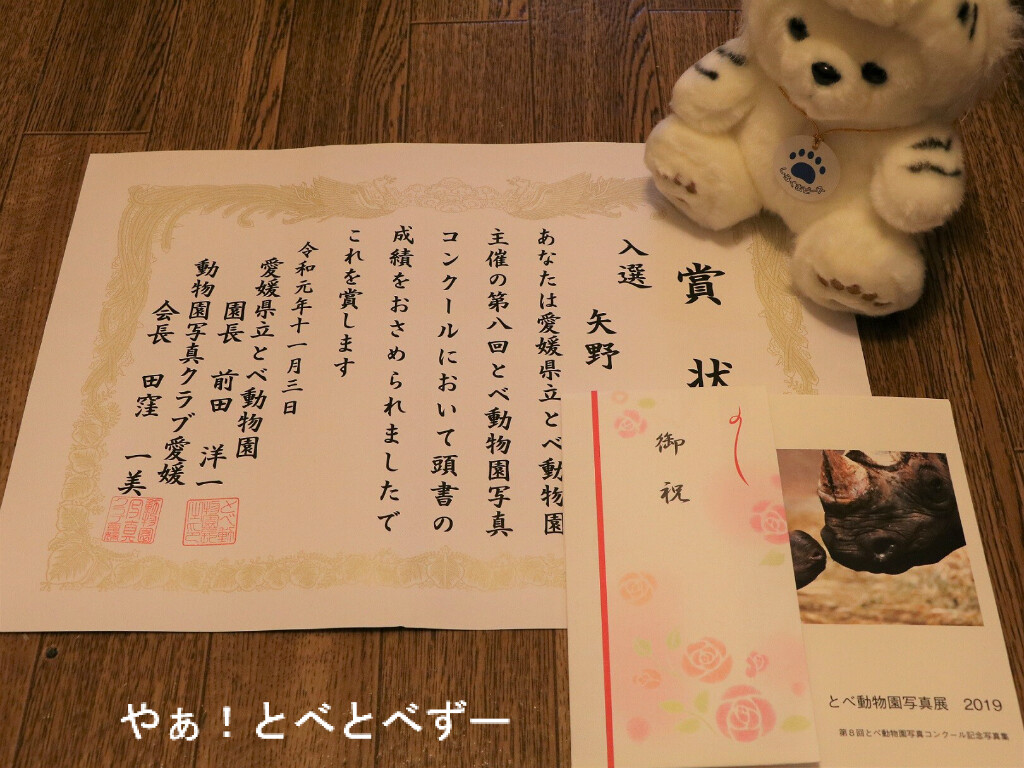 賞状
入選
矢野
あなたは愛媛県立とべ動物園
主催の第八回とべ動物園写真
コンクールにおいて頭書の
成績をおさめられましたで
これを賞します
令和元年十一月三日
愛媛県立とべ動物園
園長 前田 洋一
動物園写真クラブ愛媛
会長 田窪 一美
御祝
とべ動物園写真展 2019
第8回とべ動物園写真コンクール記念写真集
やぁ！とべとべずー